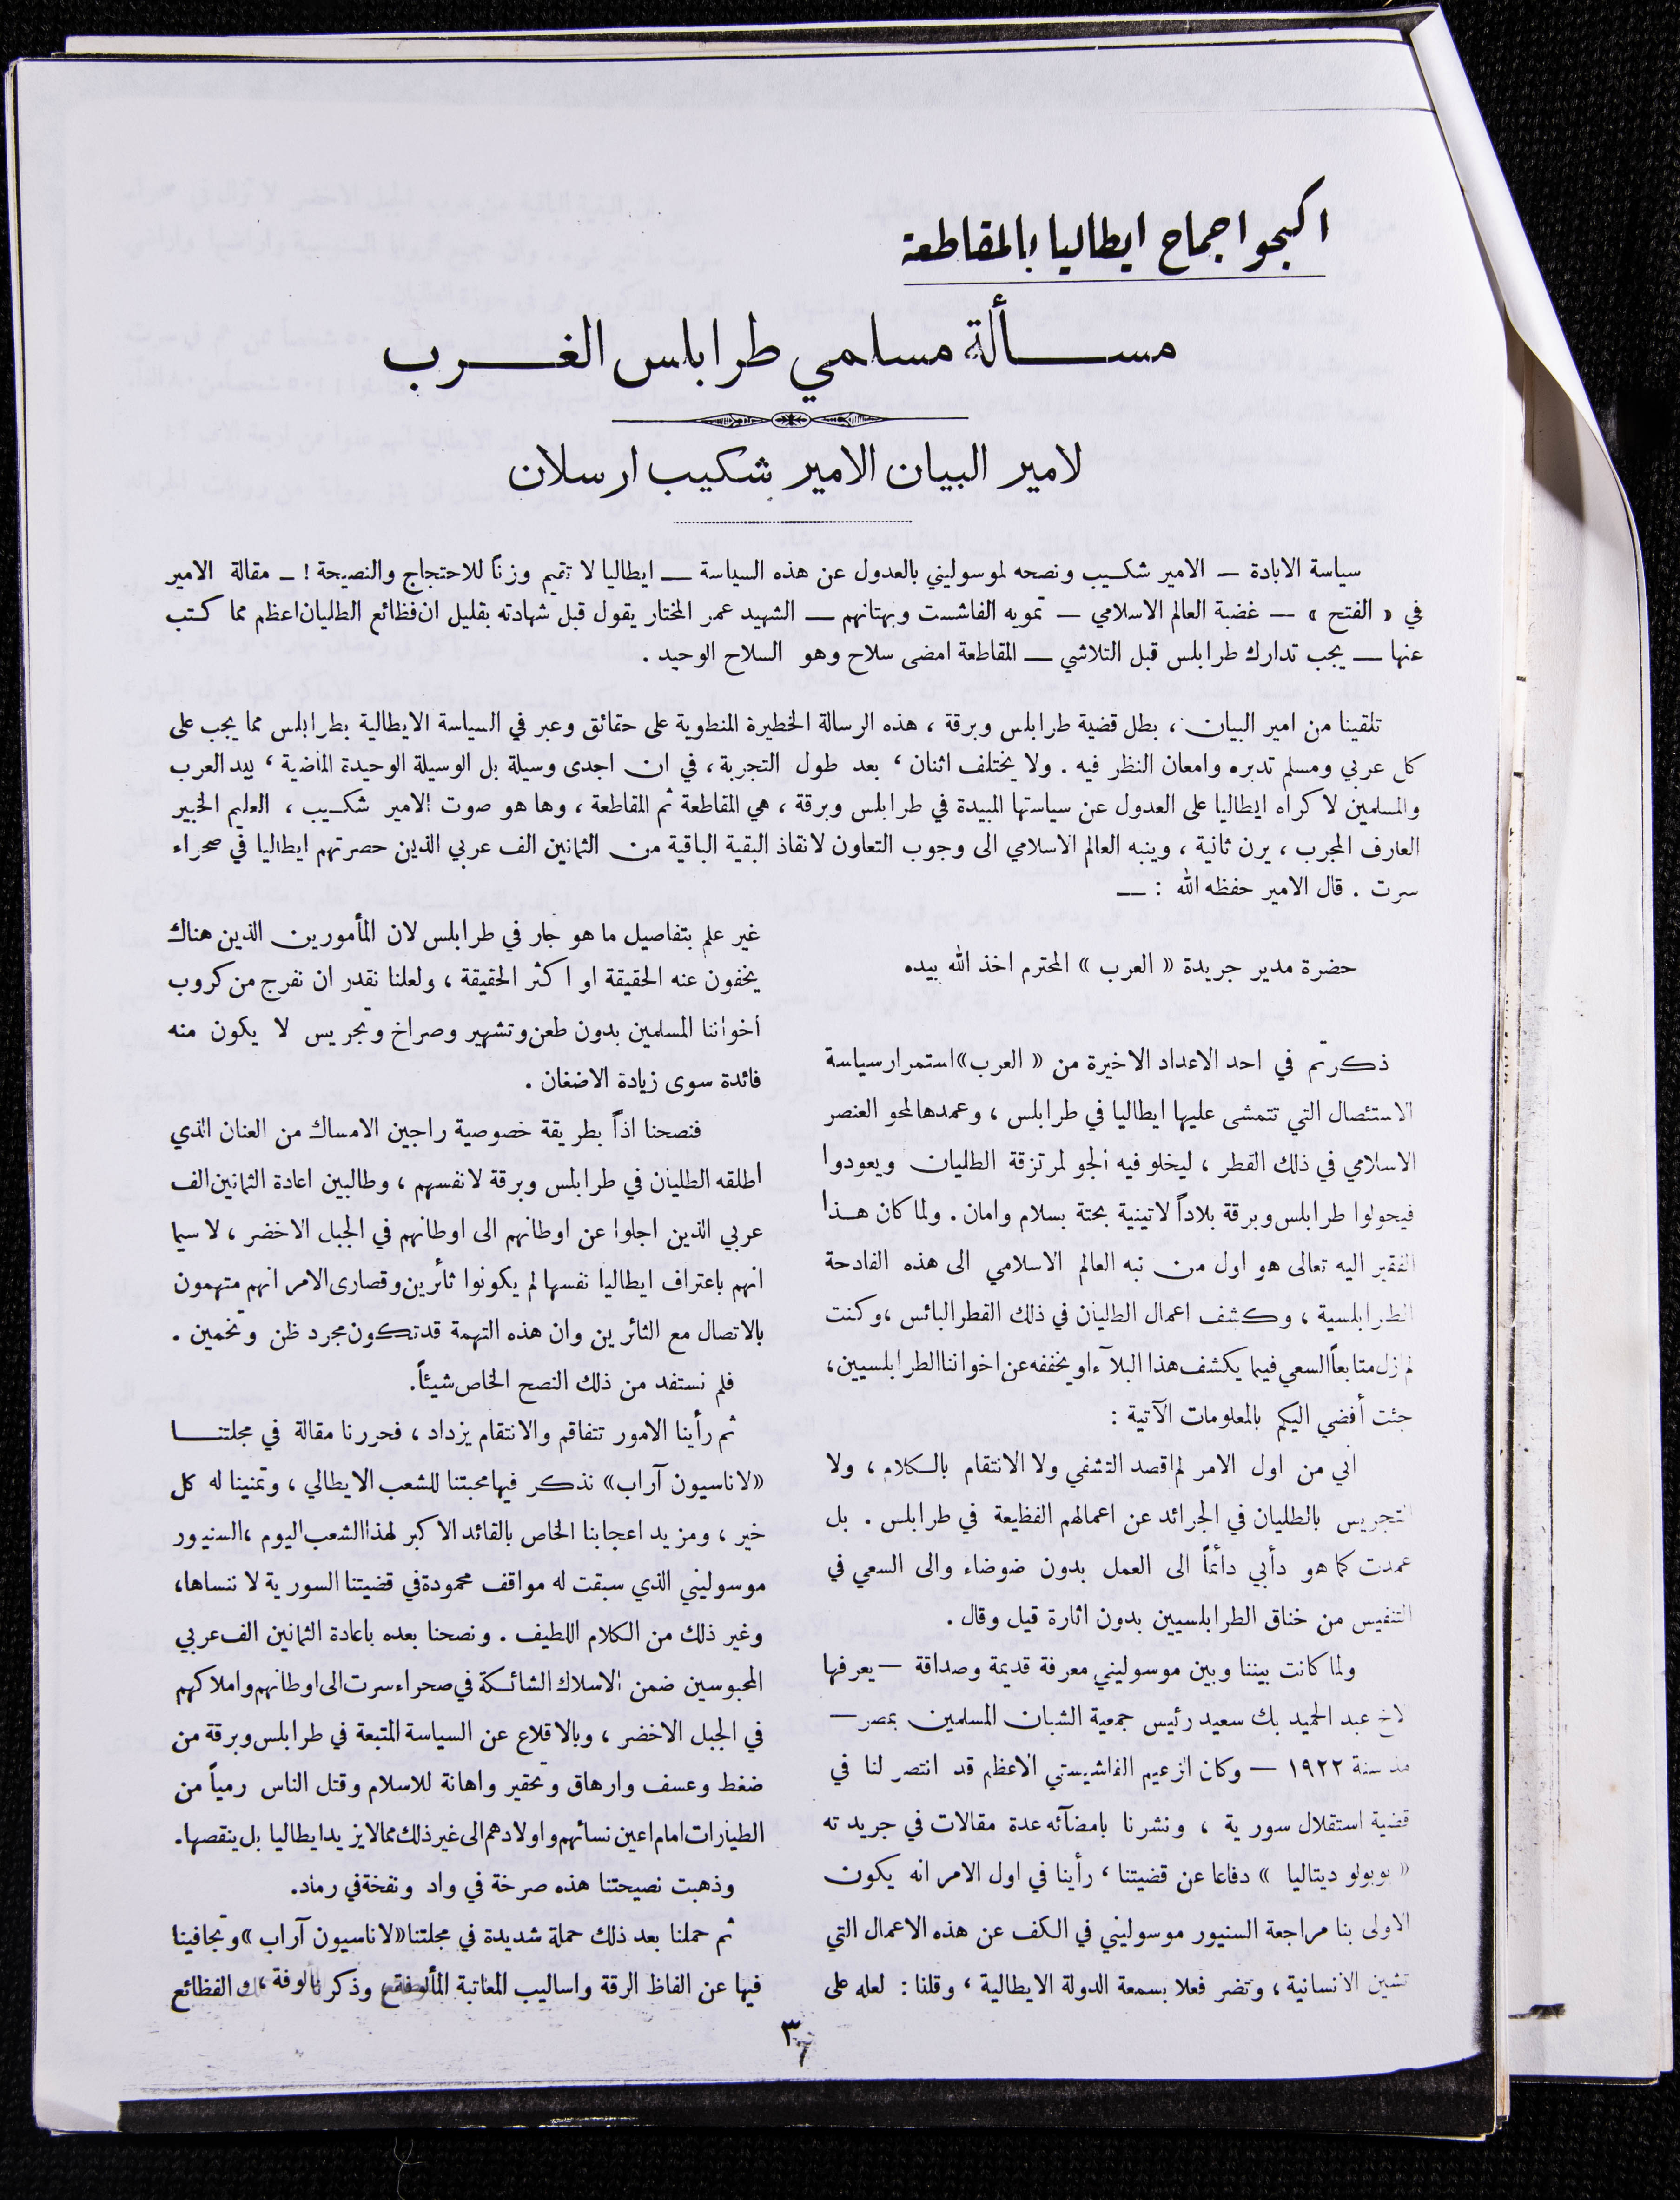 اكبحوا جماح ايطاليا بالمقاطعة
مسألة مسلمي طرابلس الغرب
لامير البيان الامير شكيب ارسلان
سياسة الابادة — الامير شكيب ونصحه لموسوليني بالعدول عن هذه السياسة — ايطاليا لا تقيم وزناً للاحتجاج والنصيحة ! — مقالة الامير
في « الفتح » — غضبة العالم الاسلامي — تمويه الفاشست وبهتانهم — الشهيد عمر المختار يقول قبل شهادته بقليل ان فظائع الطليان اعظم مما كتب
عنها — يجب تدارك طرابلس قبل التلاشي — المقاطعة امضى سلاح وهو السلاح الوحيد .
تلقينا من امير البيان ، بطل قضية طرابلس وبرقة ، هذه الرسالة الخطيرة المنطوية على حقائق وعبر في السياسة الايطالية بطرابلس مما يجب على
كل عربي ومسلم تدبره وامعان النظر فيه . ولا يختلف اثنان ، بعد طول التجربة ، في ان اجدى وسيلة بل الوسيلة الوحيدة الماضية ، بيد العرب
والمسلمين لاكراه ايطاليا على العدول عن سياستها المبيدة في طرابلس وبرقة ، هي المقاطعة ثم المقاطعة ، وها هو صوت الامير شكيب ، العليم الخبير
العارف المجرب ، يرن ثانية ، وينبه العالم الاسلامي الى وجوب التعاون لانقاذ البقية الباقية من الثمانين الف عربي الذين حصرتهم ايطاليا في صحراء
سرت . قال الامير حفظه الله : —
حضرة مدير جريدة « العرب » المحترم اخذ الله بيده
ذكرتم في احد الاعداد الاخيرة من « العرب » استمرار سياسة
الاستئصال التي تتمشى عليها ايطاليا في طرابلس ، وعمدها لمحو العنصر
الاسلامي في ذلك القطر ، ليخلو فيه الجو لمرتزقة الطليان ويعودوا
فيحولوا طرابلس وبرقة بلاداً لاتينية بحتة بسلام وامان . ولما كان هذا
الفقير اليه تعالى هو اول من نبه العالم الاسلامي الى هذه الفادحة
الطرابلسية ، وكشف اعمال الطليان في ذلك القطر البائس ، وكنت
لم ازل متابعاً السعي فيما يكشف هذا البلآء او يخففه عن اخواننا الطرابلسيين ،
جئت أفضي اليكم بالمعلومات الآتية :
اني من اول الامر لم اقصد التشفي ولا الانتقام بالكلام ، ولا
التجريس بالطليان في الجرائد عن اعمالهم الفظيعة في طرابلس . بل
عمدت كما هو دأبي دائماً الى العمل بدون ضوضاء والى السعي في
التنفيس من خناق الطرابلسيين بدون اثارة قيل وقال .
ولما كانت بيننا وبين موسوليني معرفة قديمة وصداقة — يعرفها
الاخ عبد الحميد بك سعيد رئيس جمعية الشبان المسلمين بمصر —
منذ سنة ١٩٢٢ — وكان الزعيم الفاشيستي الاعظم قد انتصر لنا في
قضية استقلال سورية ، ونشرنا بامضآئه عدة مقالات في جريدته
« بوبولو ديتاليا » دفاعا عن قضيتنا ، رأينا في اول الامر انه يكون
الاولى بنا مراجعة السنيور موسوليني في الكف عن هذه الاعمال التي
تشين الانسانية ، وتضر فعلا بسمعة الدولة الايطالية ، وقلنا : لعله على
غير علم بتفاصيل ما هو جار في طرابلس لان المأمورين الذين هناك
يخفون عنه الحقيقة او اكثر الحقيقة ، ولعلنا نقدر ان نفرج من كروب
اخواننا المسلمين بدون طعن وتشهير وصراخ وتجريس لا يكون منه
فائدة سوى زيادة الاضغان .
فنصحنا اذاً بطريقة خصوصية راجين الامساك من العنان الذي
اطلقه الطليان في طرابلس وبرقة لانفسهم ، وطالبين اعادة الثمانين الف
عربي الذين اجلوا عن اوطانهم الى اوطانهم في الجبل الاخضر ، لا سيما
انهم باعتراف ايطاليا نفسها لم يكونوا ثائرين وقصارى الامر انهم متهمون
بالاتصال مع الثائرين وان هذه التهمة قد تكون مجرد ظن وتخمين .
فلم نستفد من ذلك النصح الخاص شيئاً .
ثم رأينا الامور تتفاقم والانتقام يزداد ، فحررنا مقالة في مجلتنا
« لاناسيون آراب » نذكر فيها محبتنا للشعب الايطالي ، وتمنينا له كل
خير ، ومزيد اعجابنا الخاص بالقائد الاكبر لهذا الشعب اليوم ، السنيور
موسوليني الذي سبقت له مواقف محمودة في قضيتنا السورية لا ننساها ،
وغير ذلك من الكلام اللطيف . ونصحنا بعده باعادة الثمانين الف عربي
المحبوسين ضمن الاسلاك الشائكة في صحراء سرت الى اوطانهم واملاكهم
في الجبل الاخضر ، وبالاقلاع عن السياسة المتبعة في طرابلس وبرقة من
ضغط وعسف وارهاق وتحقير واهانة للاسلام وقتل الناس رمياً من
الطيارات امام اعين نسائهم واولادهم الى غير ذلك مما لا يزيد ايطاليا بل ينقصها .
وذهبت نصيحتنا هذه صرخة في واد ونفخة في رماد .
ثم حملنا بعد ذلك حملة شديدة في مجلتنا « لاناسيون آراب » وتجافينا
فيها عن الفاظ الرقة واساليب المعاتبة المألوفة ، وذكرنا الفظائع
٣